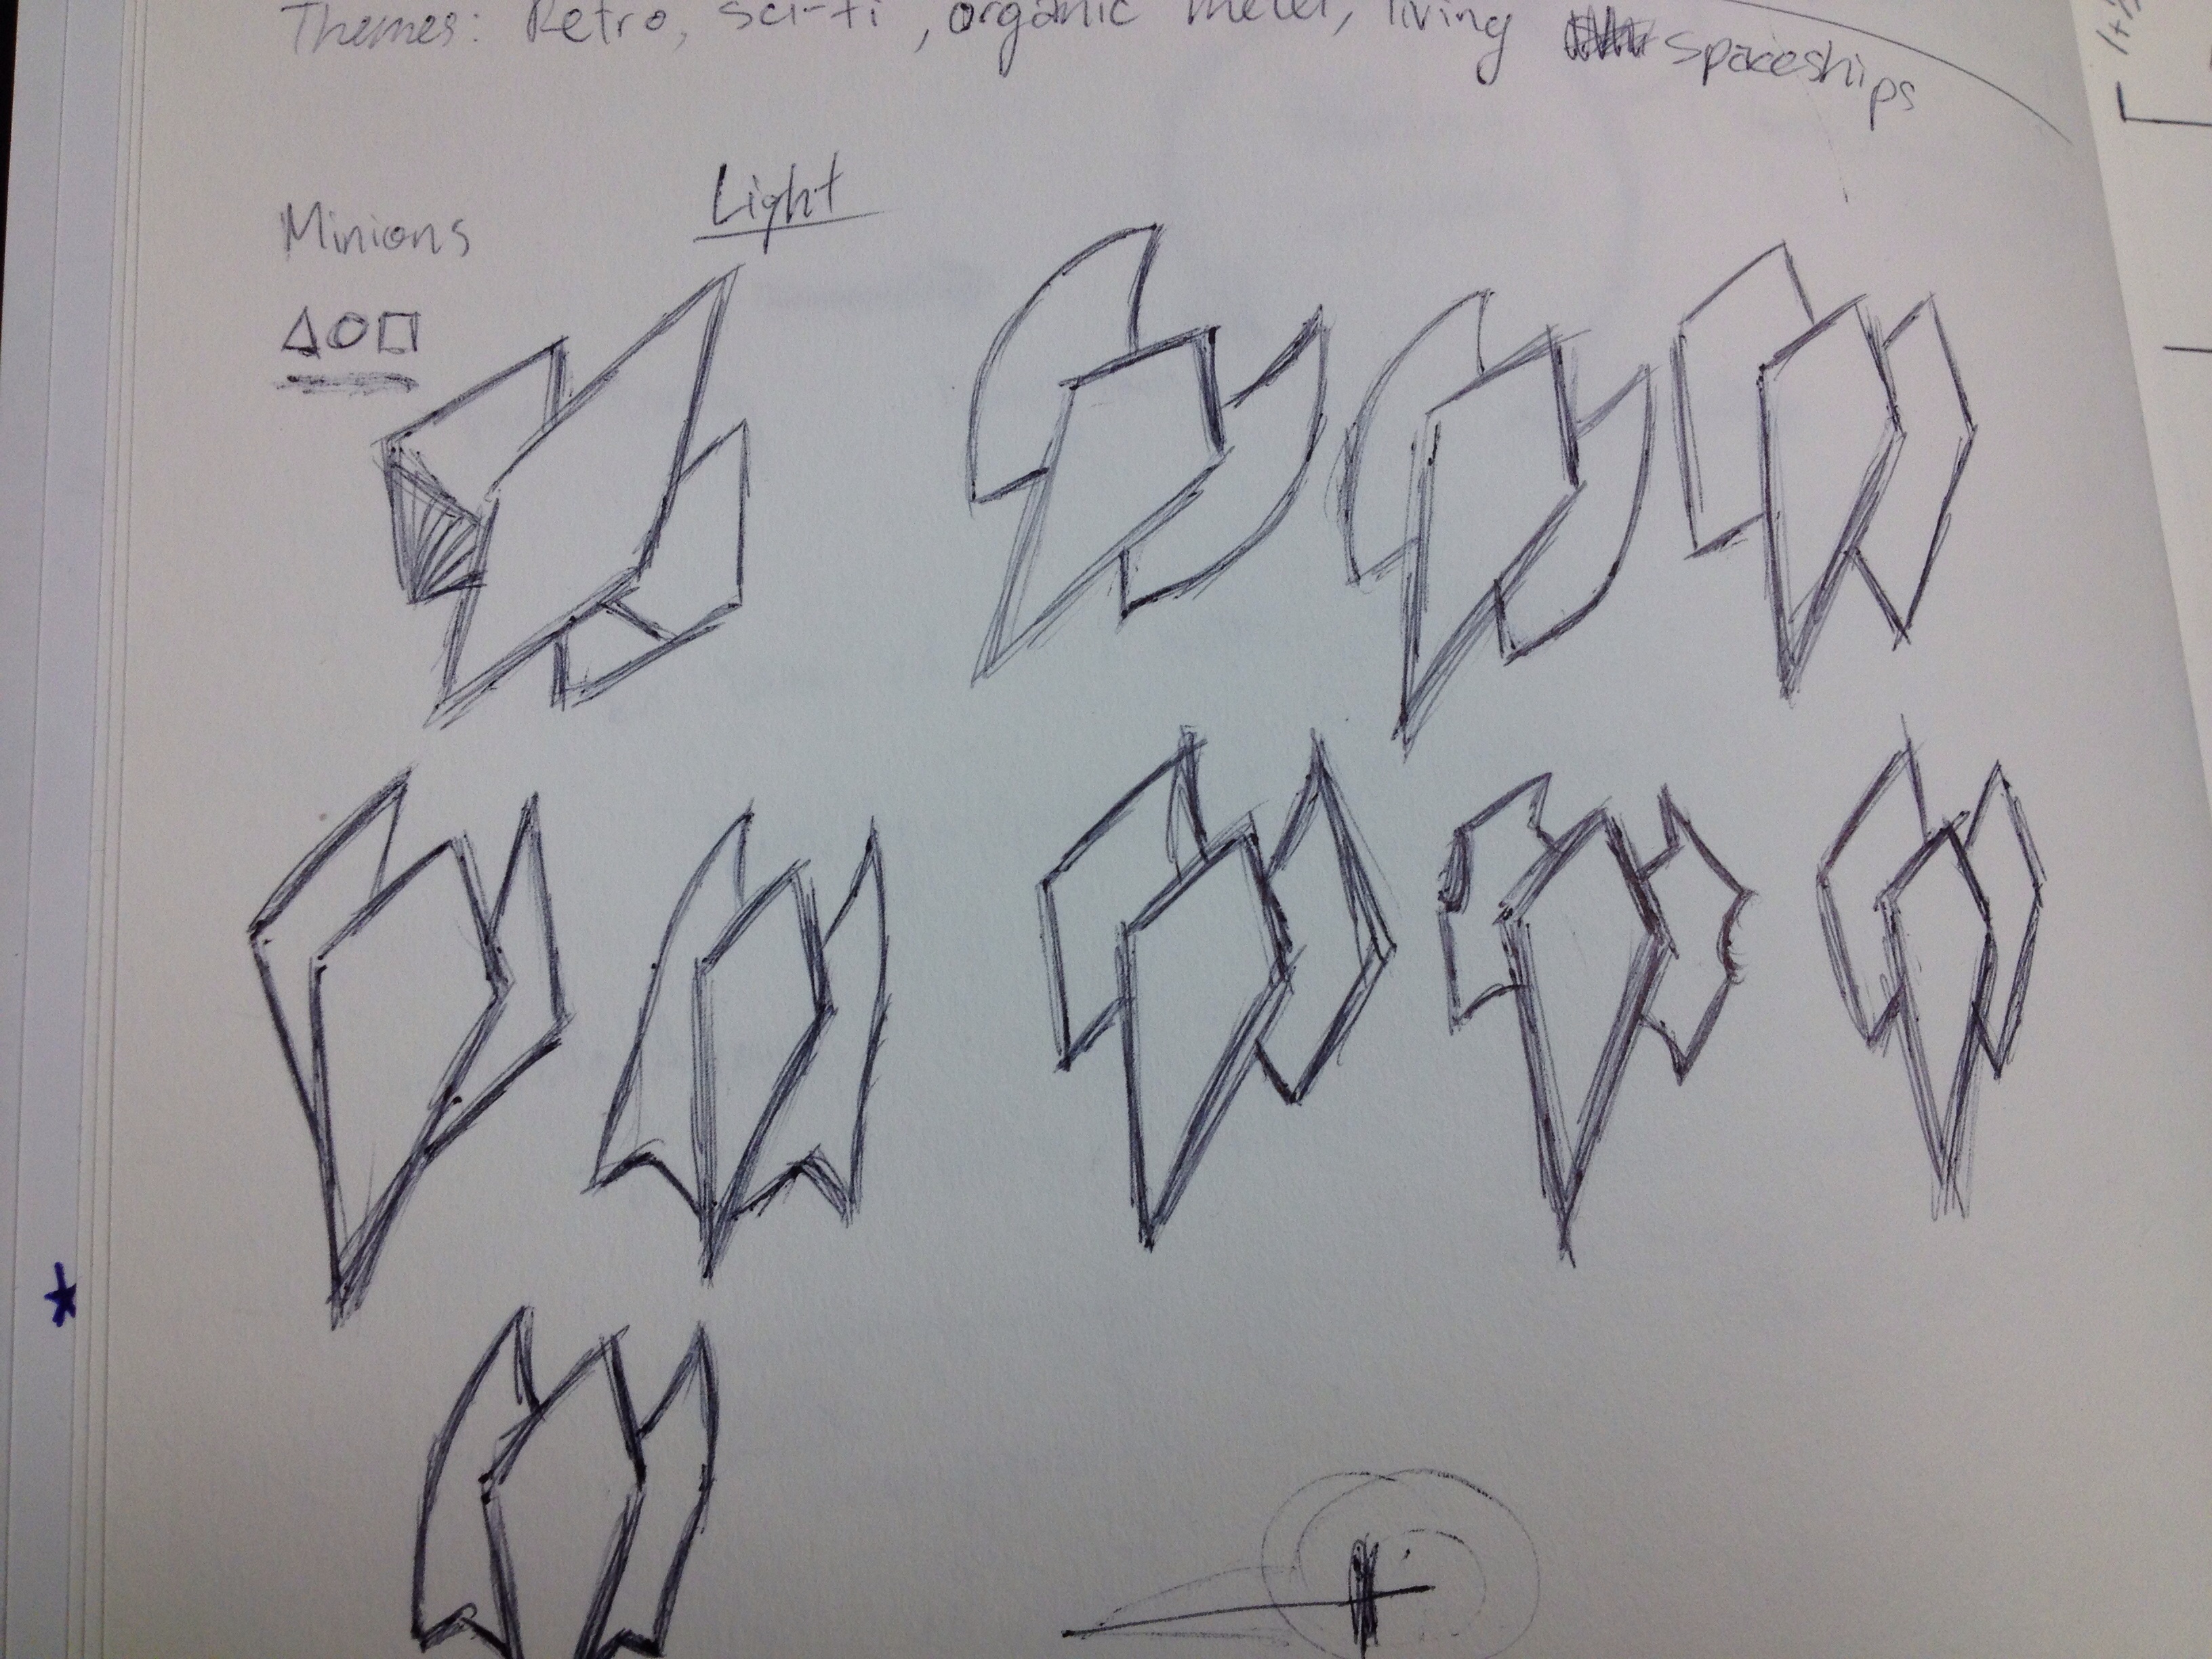 Themes: Retro, sci-fi, organic metal, living spaceships
Light
Minions